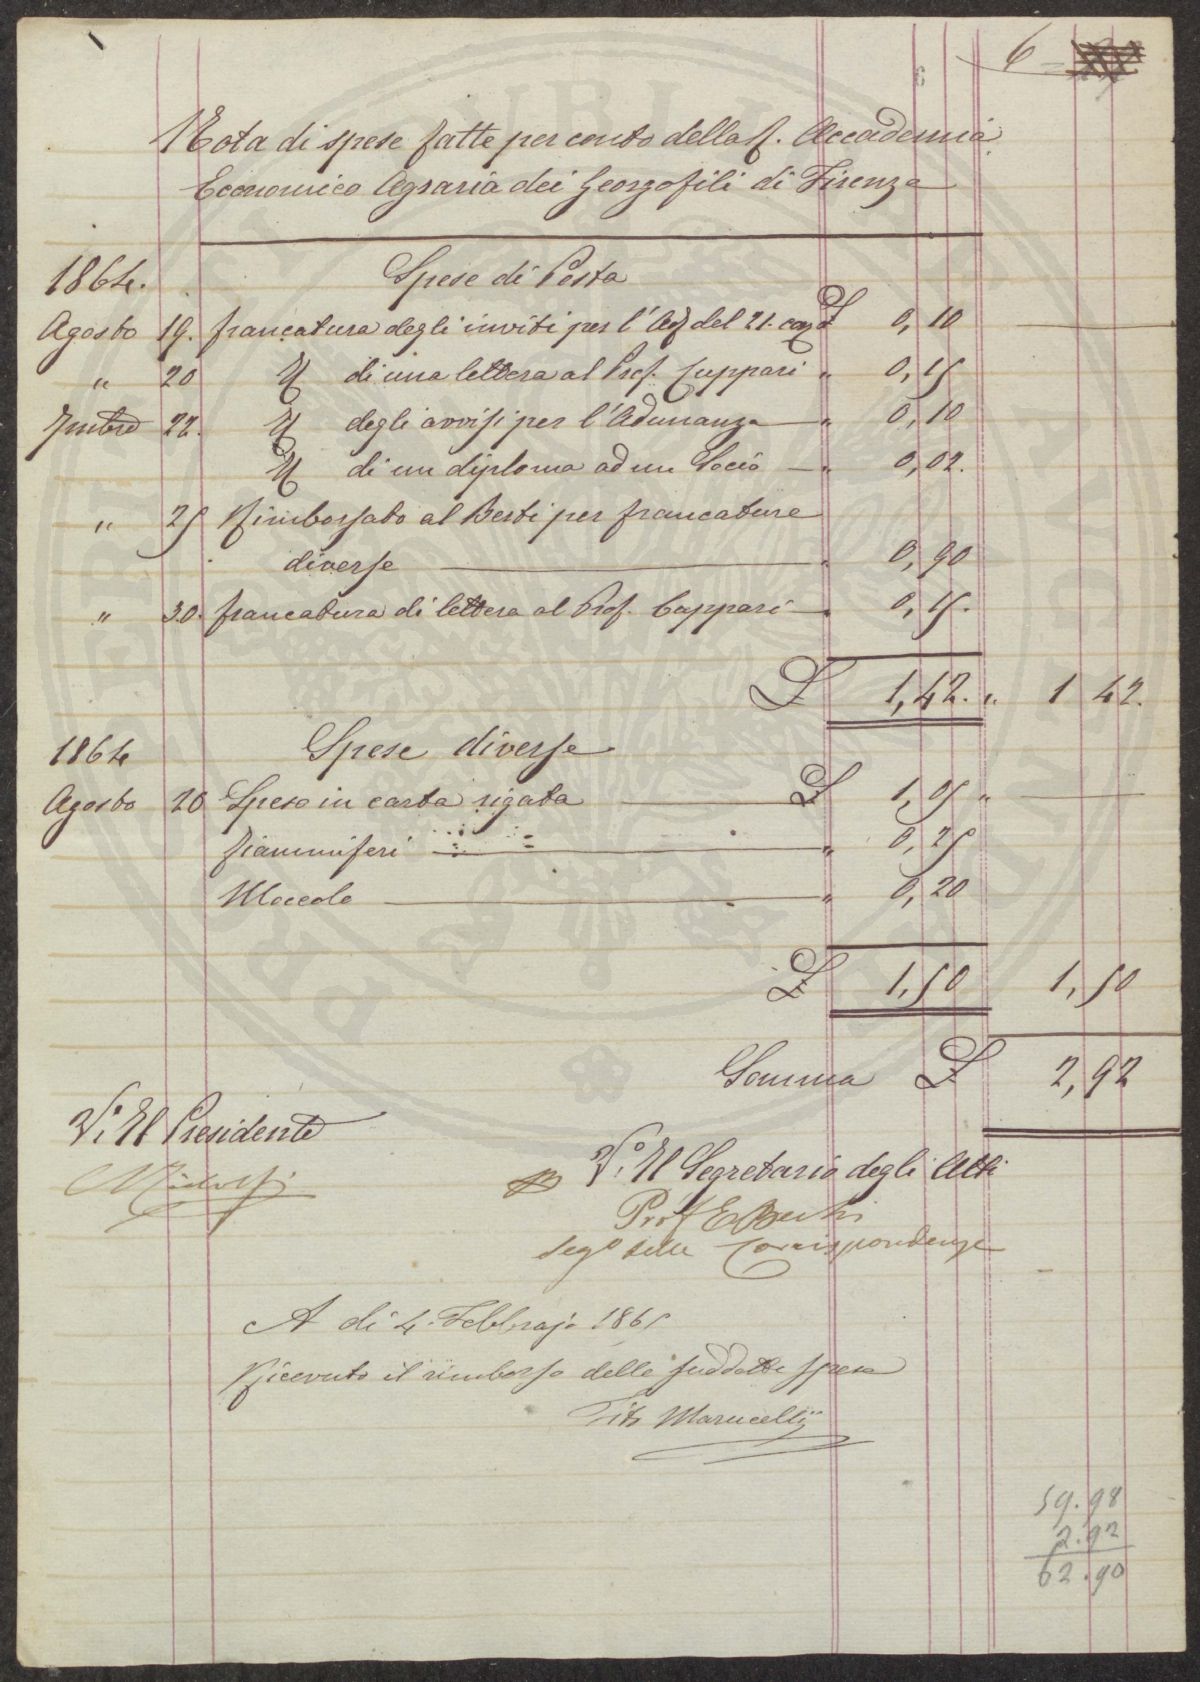 6
Nota di spese fatte per conto della R. Accademia
Economico Agraria dei Georgofili di Firenze
1864. Spese di Posta
Agosto 19. francatura degli inviti per l'Adª del 21. £ 0,10
" 20 Id di una lettera al Prof. Cuppari " 0,15
7mbre 22. Id degli avvisi per l'Adunanza " 0,10
Id di un diploma ad un Socio " 0,02.
" 25 Rimborsato al Berti per francature
diverse " 0,90
" 30. francatura di lettera al Prof. Cuppari " 0,15.
£ 1,42. " 1 42.
1864 Spese diverse
Agosto 20 Spese in carta rigata £ 1,05 "
fiammiferi " 0,25
Moccolo " 0,20
£ 1,50 1,50
Somma £ 2,92
V.º Il Presidente
Ridolfi
V.º Il Segretario degli Atti
Prof E Berti
Segº delle Corrispondenze
A dì 4. Febbrajo 1865
Ricevuto il rimborso delle suddette spese
Tito Marucellij
59.98
2.92
62.90
PUBLIC